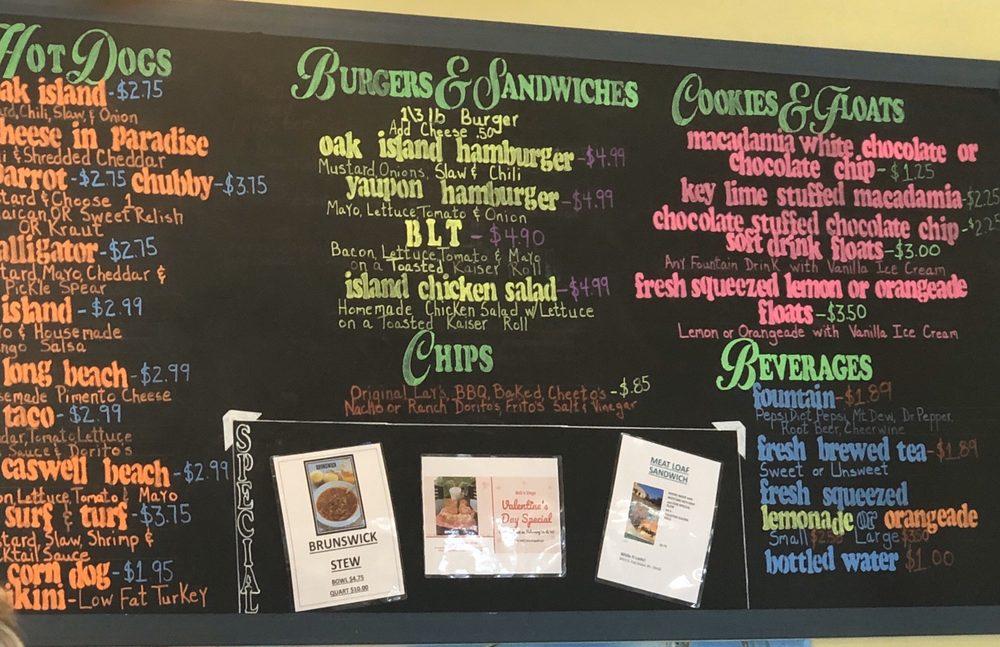 Hot Dogs
oak island - $2.75
Chili, Slaw, & Onion
cheese in Paradise
& Shredded Cheddar
parrot - $2.75 chubby - $3.75
& Choose 1
OR Sweet Relish
OR Kraut
alligator - $2.75
Mayo, Cheddar &
Pickle Spear
island - $2.99
& Housemade
Salsa
long beach - $2.99
Pimento Cheese
taco - $2.99
Tomato, Lettuce
Sauce & Dorito's
caswell beach - $2.99
Lettuce, Tomato & Mayo
surf & turf - $3.75
Slaw, Shrimp &
Sauce
corn dog - $1.95
- Low Fat Turkey
Burgers & Sandwiches
1\3 lb Burger
Add Cheese .50
oak island hamburger - $4.99
Mustard, Onions, Slaw & Chili
yaupon hamburger - $4.99
Mayo, Lettuce Tomato & Onion
BLT - $4.90
Bacon, Lettuce, Tomato & Mayo
on a Toasted Kaiser Roll
island chicken salad - $4.99
Homemade Chicken Salad w/ Lettuce
on a Toasted Kaiser Roll
Chips
Original Lay's, BBQ, Baked, Cheeto's - $.85
Nacho or Ranch Dorito's, Frito's Salt & Vinegar
SPECIAL
BRUNSWICK
STEW
BOWL $4.75
QUART $10.00
Valentine's
Day Special
MEAT LOAF
SANDWICH
Cookies & Floats
macadamia white chocolate or
chocolate chip - $1.25
key lime stuffed macadamia - $2.25
chocolate stuffed chocolate chip - $2.25
soft drink floats - $3.00
Any Fountain Drink with Vanilla Ice Cream
fresh squeezed lemon or orangeade
floats - $3.50
Lemon or Orangeade with Vanilla Ice Cream
Beverages
fountain - $1.89
Pepsi, Diet Pepsi, Mt. Dew, Dr. Pepper,
Root Beer, Cheerwine
fresh brewed tea - $1.89
Sweet or Unsweet
fresh squeezed
lemonade or orangeade
Small Large
bottled water $1.00